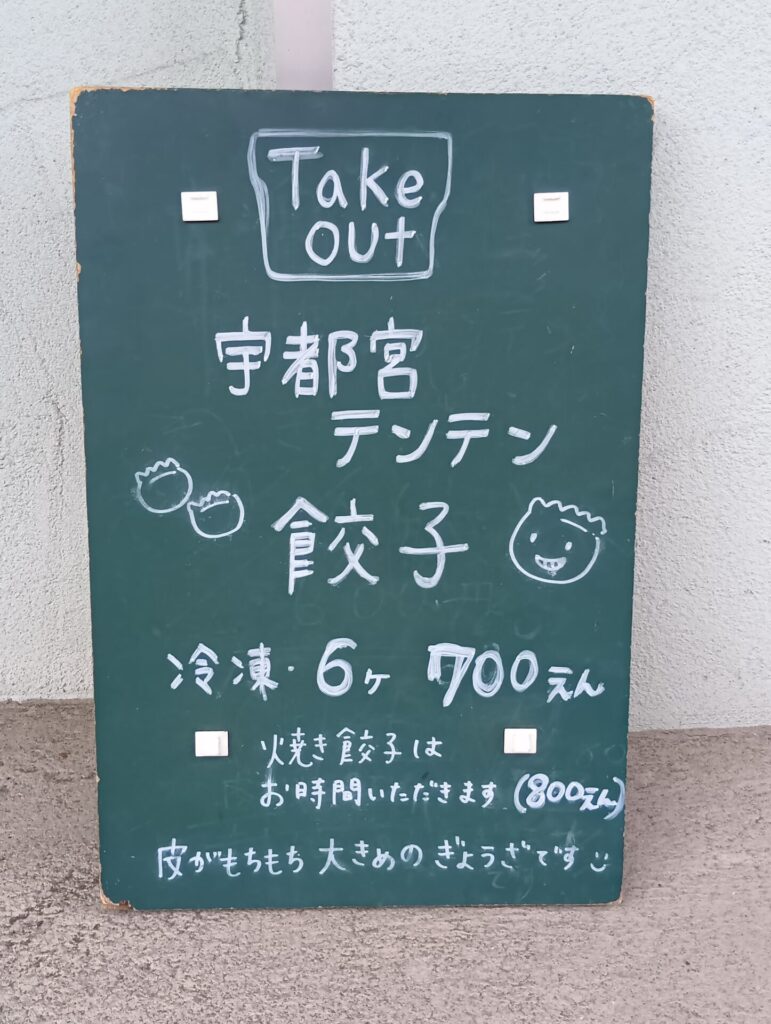 Take
out
宇都宮
テンテン
餃子
冷凍・6ヶ 700えん
焼き餃子は
お時間いただきます (800えん)
皮がもちもち 大きめの ぎょうざです